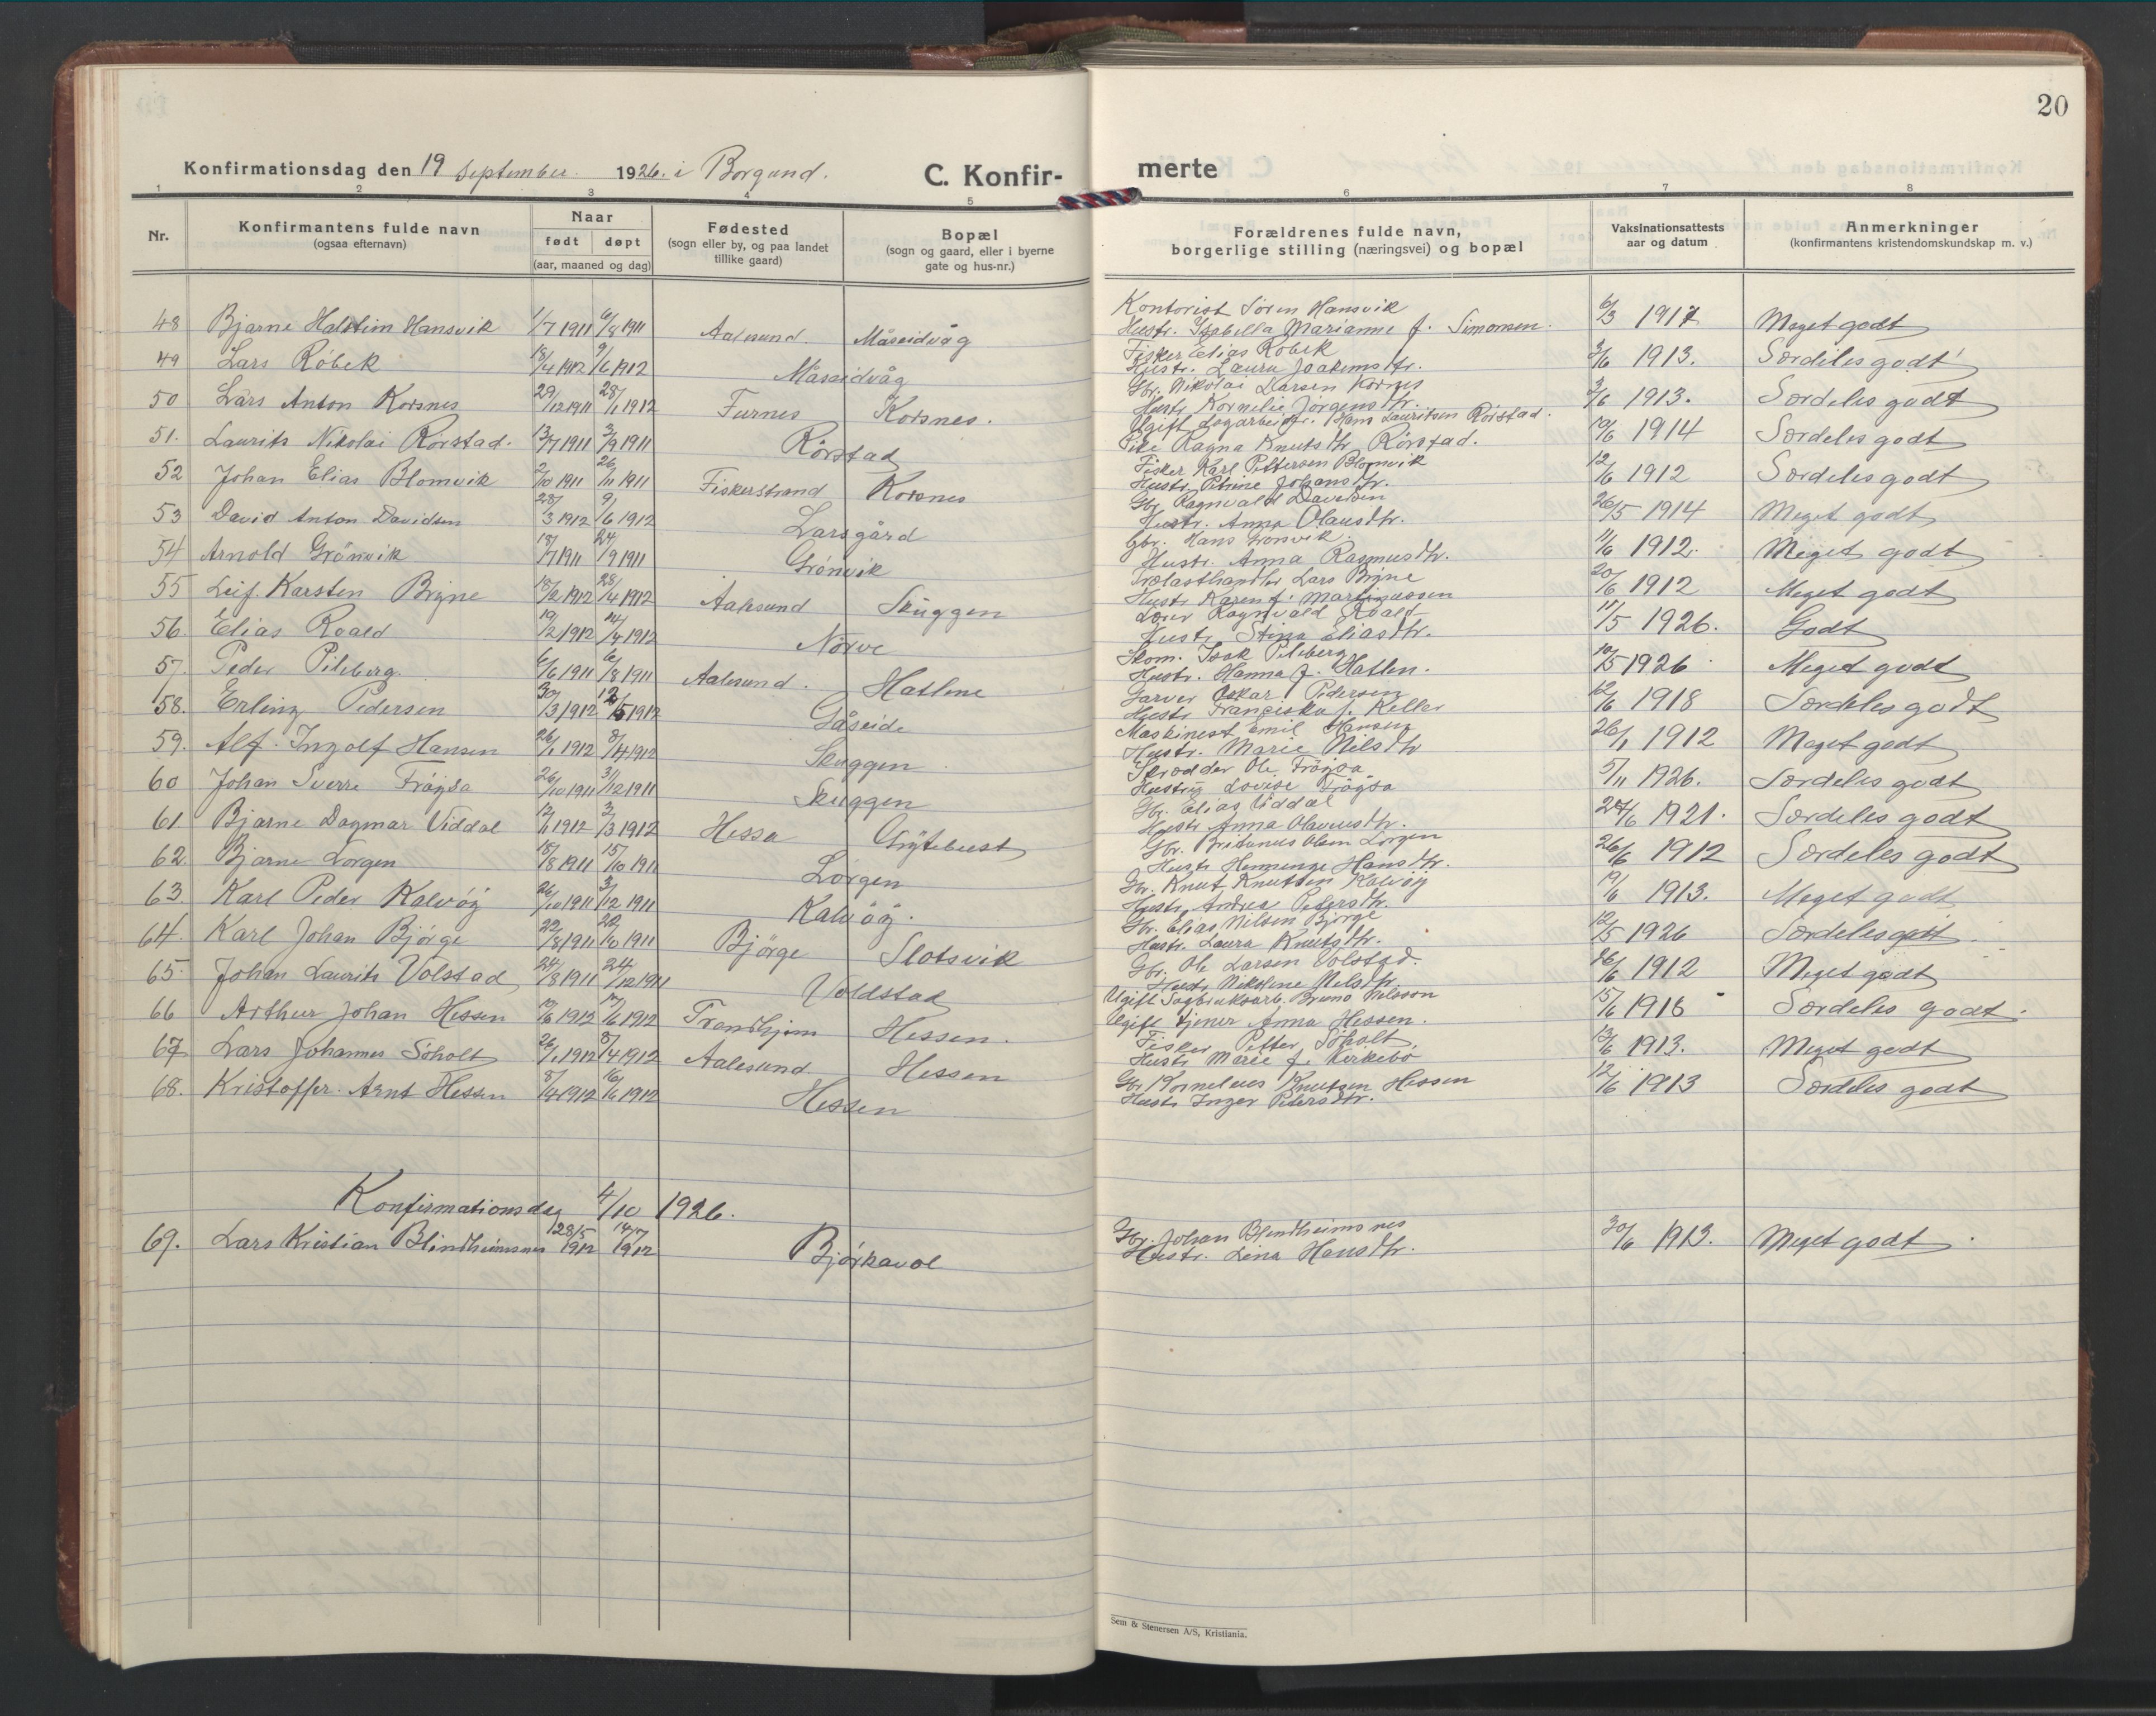 20
Konfirmationsdag den 19 September 1926. i Borgund. C. Konfir- merte
1 2 3 4 5 6 7 8
Nr. Konfirmantens fulde navn (ogsaa efternavn) Naar født døpt (aar, maaned og dag) Fødested (sogn eller by, og paa landet tillike gaard) Bopæl (sogn og gaard, eller i byerne gate og hus-nr.) Forældrenes fulde navn, borgerlige stilling (næringsvei) og bopæl Vaksinationsattests aar og datum Anmerkninger (konfirmantens kristendomskundskap m. v.)
48 Bjarne Halstein Hansvik 1/7 1911 6/8 1911 Aalesund. Måseidvåg Kontorist Søren Hansvik Hustr. Isabella Marianne f. Simonsen. 6/3 1917 Meget godt
49 Lars Röbek 18/4 1912 9/6 1912 Måseidvåg Fisker Elias Röbek Hustr. Laura Joakimsdtr. 3/6 1913. Særdeles godt
50 Lars Anton Korsnes 29/12 1911 28/1 1912 Furnes Korsnes. Gbr. Nikolai Larsen Korsnes Hustr. Kornelie Jørgensdtr. 3/6 1913. Særdeles godt
51. Laurits Nikolai Rörstad. 13/7 1911 3/9 1911 Rörstad Ugift Dagarbeider. Hans Lauritsen Rörstad. Pike Ragna Knutsdtr Rörstad. 10/6 1914 Særdeles godt
52 Johan Elias Blomvik 2/10 1911 26/11 1911 Fiskerstrand Korsnes Fisker Karl Pettersen Blomvik Hustr. Petrine Johansdtr. 12/6 1912 Særdeles godt
53 David Anton Davidsen 28/3 1912 9/6 1912 Larsgård Gbr Ragnvald Davidsen Hustr. Anna Olausdtr. 26/5 1914 Meget godt
54 Arnold Grönvik 18/7 1911 24/9 1911 Grönvik Gbr. Hans Grönvik. Hustr. Anna Rasmusdtr. 11/6 1912. Meget godt
55 Leif. Karsten Bryne 18/2 1912 28/4 1912 Aalesund Skuggen Trælasthandler Lars Bryne Hustr Karen f. Martinussen 20/6 1912 Meget godt
56. Elias Roald 19/2 1912 14/4 1912 Nörve Lærer Ragnvald Roald Hustr. Stina Eliasdtr. 11/5 1926. Godt
57. Peder Pileberg. 6/6 1911 6/8 1911 Aalesund. Hatlene Skom. Isak Pileberg Hustr. Hanna f. Hatlen. 10/5 1926 Meget godt
58. Erling Pedersen 30/3 1912 12/5 1912 Gåseide Garver Oskar Pedersen Hustr Franciska f. Keller 12/6 1918 Særdeles godt
59. Alf. Ingolf Hansen 26/1 1912 8/4 1912 Skuggen Maskinest Emil Hansen Hustr. Marie Nilsdtr 26/1 1912 Meget godt
60 Johan Sverre Fröysa 26/10 1911 31/12 1911 Skuggen Skrædder Ole Fröysa Hustru Lovise Fröysa 5/11 1926. Særdeles godt
61. Bjarne Dagmar Viddal 12/1 1912 3/3 1912 Hessa Grytebust Gbr. Elias Viddal Hustr Anna Olavusdtr. 24/6 1921. Særdeles godt
62. Bjarne Lorgen 18/8 1911 15/10 1911 Lorgen Gbr. Olsen Lorgen Hustr Hansdtr. 26/6 1912 Særdeles godt
63. Karl Peder Kalvöy 26/10 1911 3/12 1911 Kalvöy. Gbr. Knut Knutsen Kalvöy Hustr. Andrea Pedersdtr. 19/6 1913. Meget godt
64. Karl Johan Bjørge 22/8 1911 22/10 1911 Bjørge Slotsvik Gbr. Elias Nilsen Bjørge Hustr. Laura Knutsdtr. 12/5 1926 Særdeles godt
65 Johan Laurits Volstad 24/8 1911 24/12 1911 Voldstad Gbr. Ole Larsen Volstad. Hustr Nikoline Nilsdtr 26/6 1912 Meget godt
66 Arthur Johan Hessen 10/6 1912 Trondhjem Hessen. Ugift Sagbruksarb. Bruno Nilsson Ugift tjener Anna Hessen. 15/6 1918 Særdeles godt.
67 Lars Johannes Söholt 26/1 1912 8/4 1912 Aalesund Hessen Fisker Petter Söholt Hustr Marie f. Kirkebö 13/6 1913. Meget godt
68. Kristoffer. Arnt Hessen 8/4 1912 16/6 1912 Hessen Gbr Kornelius Knutsen Hessen Hustr Inger Petersdtr. 12/6 1913 Særdeles godt
Konfirmationsdag 4/10 1926.
69. Lars Kristian Blindheimsnes 28/5 1912 14/7 1912 Bjørkavol Gbr. Johan Blindheimsnes Hustr. Lena Hansdtr. 30/6 1913. Meget godt
Sem & Stenersen A/S, Kristiania.